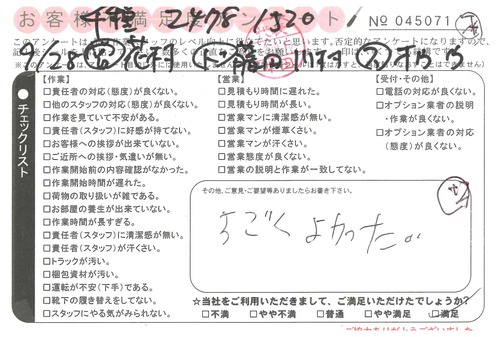 お客様満足度アンケート
千種 2478 1320
№ 045071
9/28
【作業】
□責任者の対応(態度)が良くない。
□他のスタッフの対応(態度)が良くない。
□作業を見ていて不安がある。
□責任者(スタッフ)に好感が持てない。
□お客様への挨拶が出来ていない。
□ご近所への挨拶・気遣いが無い。
□作業開始前の内容確認がなかった。
□作業開始時間が遅れた。
□荷物の取り扱いが雑である。
□お部屋の養生が出来ていない。
□作業時間が長すぎる。
□責任者(スタッフ)に清潔感が無い。
□責任者(スタッフ)が汗くさい。
□トラックが汚い。
□梱包資材が汚い。
□運転が不安(下手)である。
□靴下の履き替えをしてない。
□スタッフにやる気がみられない。
【営業】
□見積もり時間に遅れた。
□見積もり時間が長い。
□営業マンに清潔感が無い。
□営業マンが煙草くさい。
□営業マンが汗くさい。
□営業態度が良くない。
□営業の説明と作業が一致してない。
【受付・その他】
□電話の対応が良くない。
□オプション業者の説明
・作業が良くない。
□オプション業者の対応
(態度)が良くない。
●チェックリスト
その他、ご意見・ご要望等ありましたらお書き下さい。
すごくよかった。
☆当社をご利用いただきまして、ご満足いただけたでしょうか?
□不満 □やや不満 □普通 □やや満足 □満足
ご協力ありがとうございました